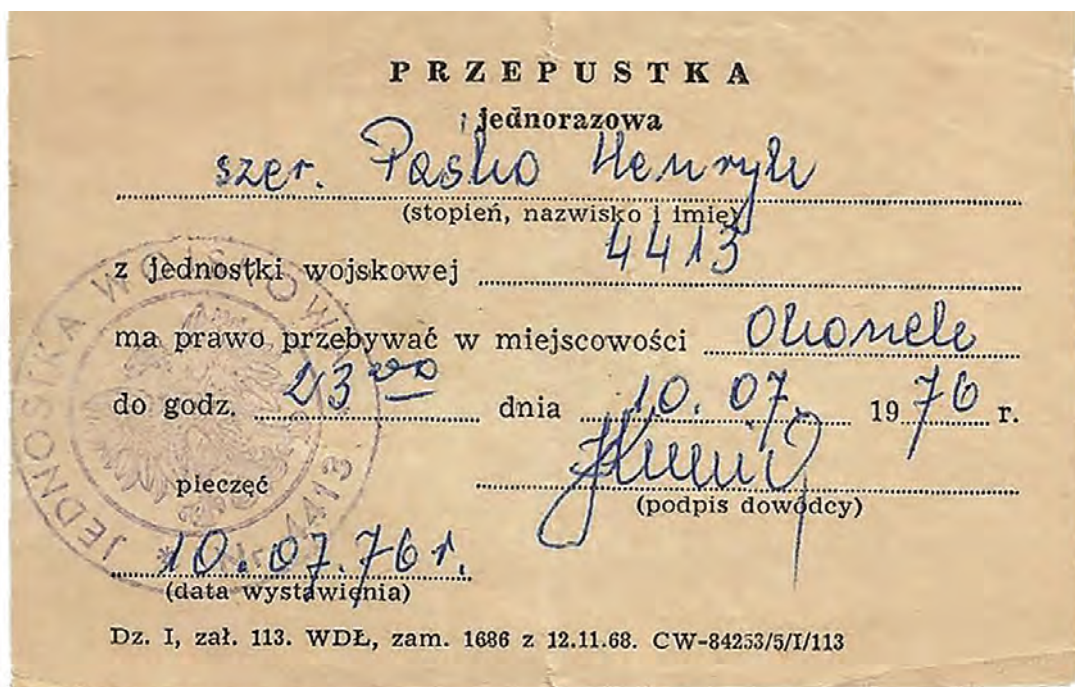 PRZEPUSTKA
jednorazowa
szer. Pasko Henryk
(stopień, nazwisko i imię)
z jednostki wojskowej 4413
ma prawo przebywać w miejscowości Okonek
do godz. 23 00 dnia 10. 07. 1976 r.
pieczęć
(podpis dowódcy)
10.07.76 r.
(data wystawienia)
Dz. I, zał. 113. WDŁ, zam. 1686 z 12.11.68. CW-84253/5/I/113
JEDNOSTKA WOJSKOWA * Nr 4413